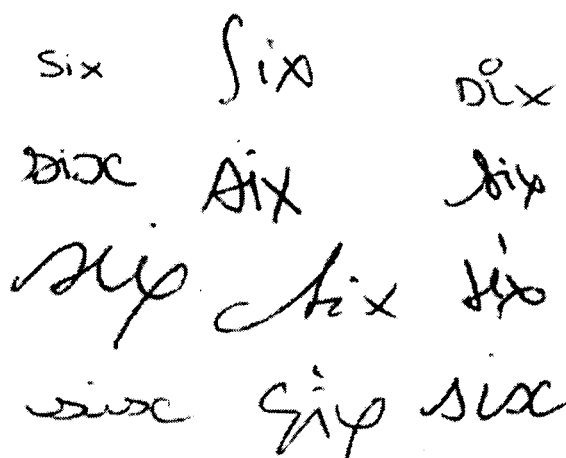 Six Six six
six six six
six six six
six six six